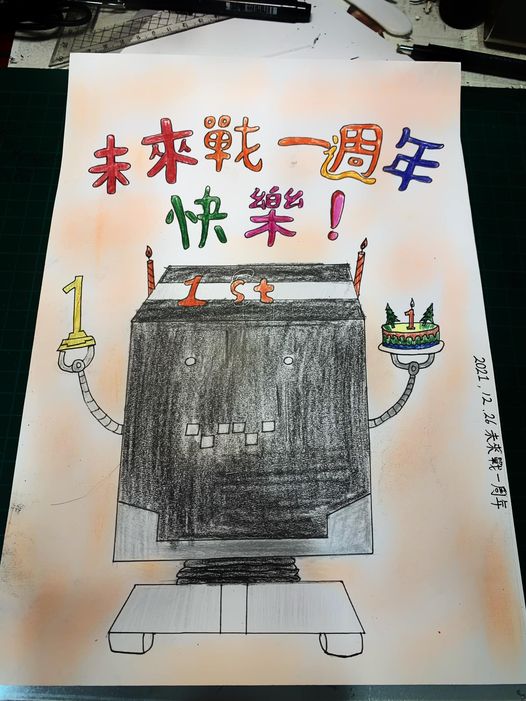 未來戰一週年
快樂！
1st
1
1
2021.12.26 未來戰一周年